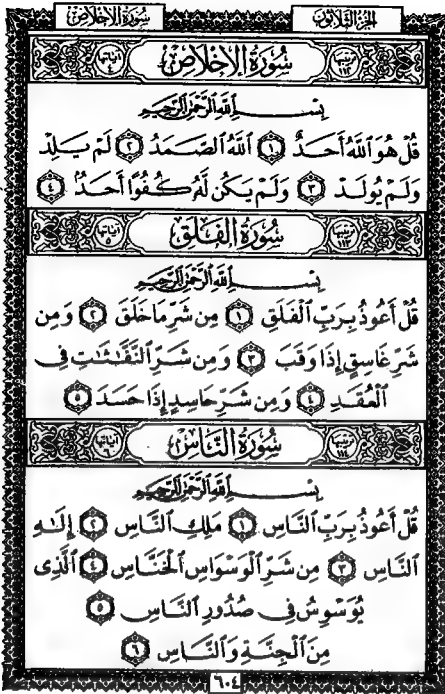 الجزء الثلاثون
سورة الإخلاص
ترتيبها ١١٢ سُورَةُ الْإِخْلَاصِ آياتها ٤
بِسْمِ اللَّهِ الرَّحْمَٰنِ الرَّحِيمِ
قُلْ هُوَ اللَّهُ أَحَدٌ ١ اللَّهُ الصَّمَدُ ٢ لَمْ يَلِدْ
وَلَمْ يُولَدْ ٣ وَلَمْ يَكُن لَّهُ كُفُوًا أَحَدٌ ٤
ترتيبها ١١٣ سُورَةُ الْفَلَقِ آياتها ٥
بِسْمِ اللَّهِ الرَّحْمَٰنِ الرَّحِيمِ
قُلْ أَعُوذُ بِرَبِّ الْفَلَقِ ١ مِن شَرِّ مَا خَلَقَ ٢ وَمِن
شَرِّ غَاسِقٍ إِذَا وَقَبَ ٣ وَمِن شَرِّ النَّفَّٰثَٰتِ فِى
الْعُقَدِ ٤ وَمِن شَرِّ حَاسِدٍ إِذَا حَسَدَ ٥
ترتيبها ١١٤ سُورَةُ النَّاسِ آياتها ٦
بِسْمِ اللَّهِ الرَّحْمَٰنِ الرَّحِيمِ
قُلْ أَعُوذُ بِرَبِّ النَّاسِ ١ مَلِكِ النَّاسِ ٢ إِلَٰهِ
النَّاسِ ٣ مِن شَرِّ الْوَسْوَاسِ الْخَنَّاسِ ٤ الَّذِى
يُوَسْوِسُ فِى صُدُورِ النَّاسِ ٥
مِنَ الْجِنَّةِ وَالنَّاسِ ٦
٦٠٤